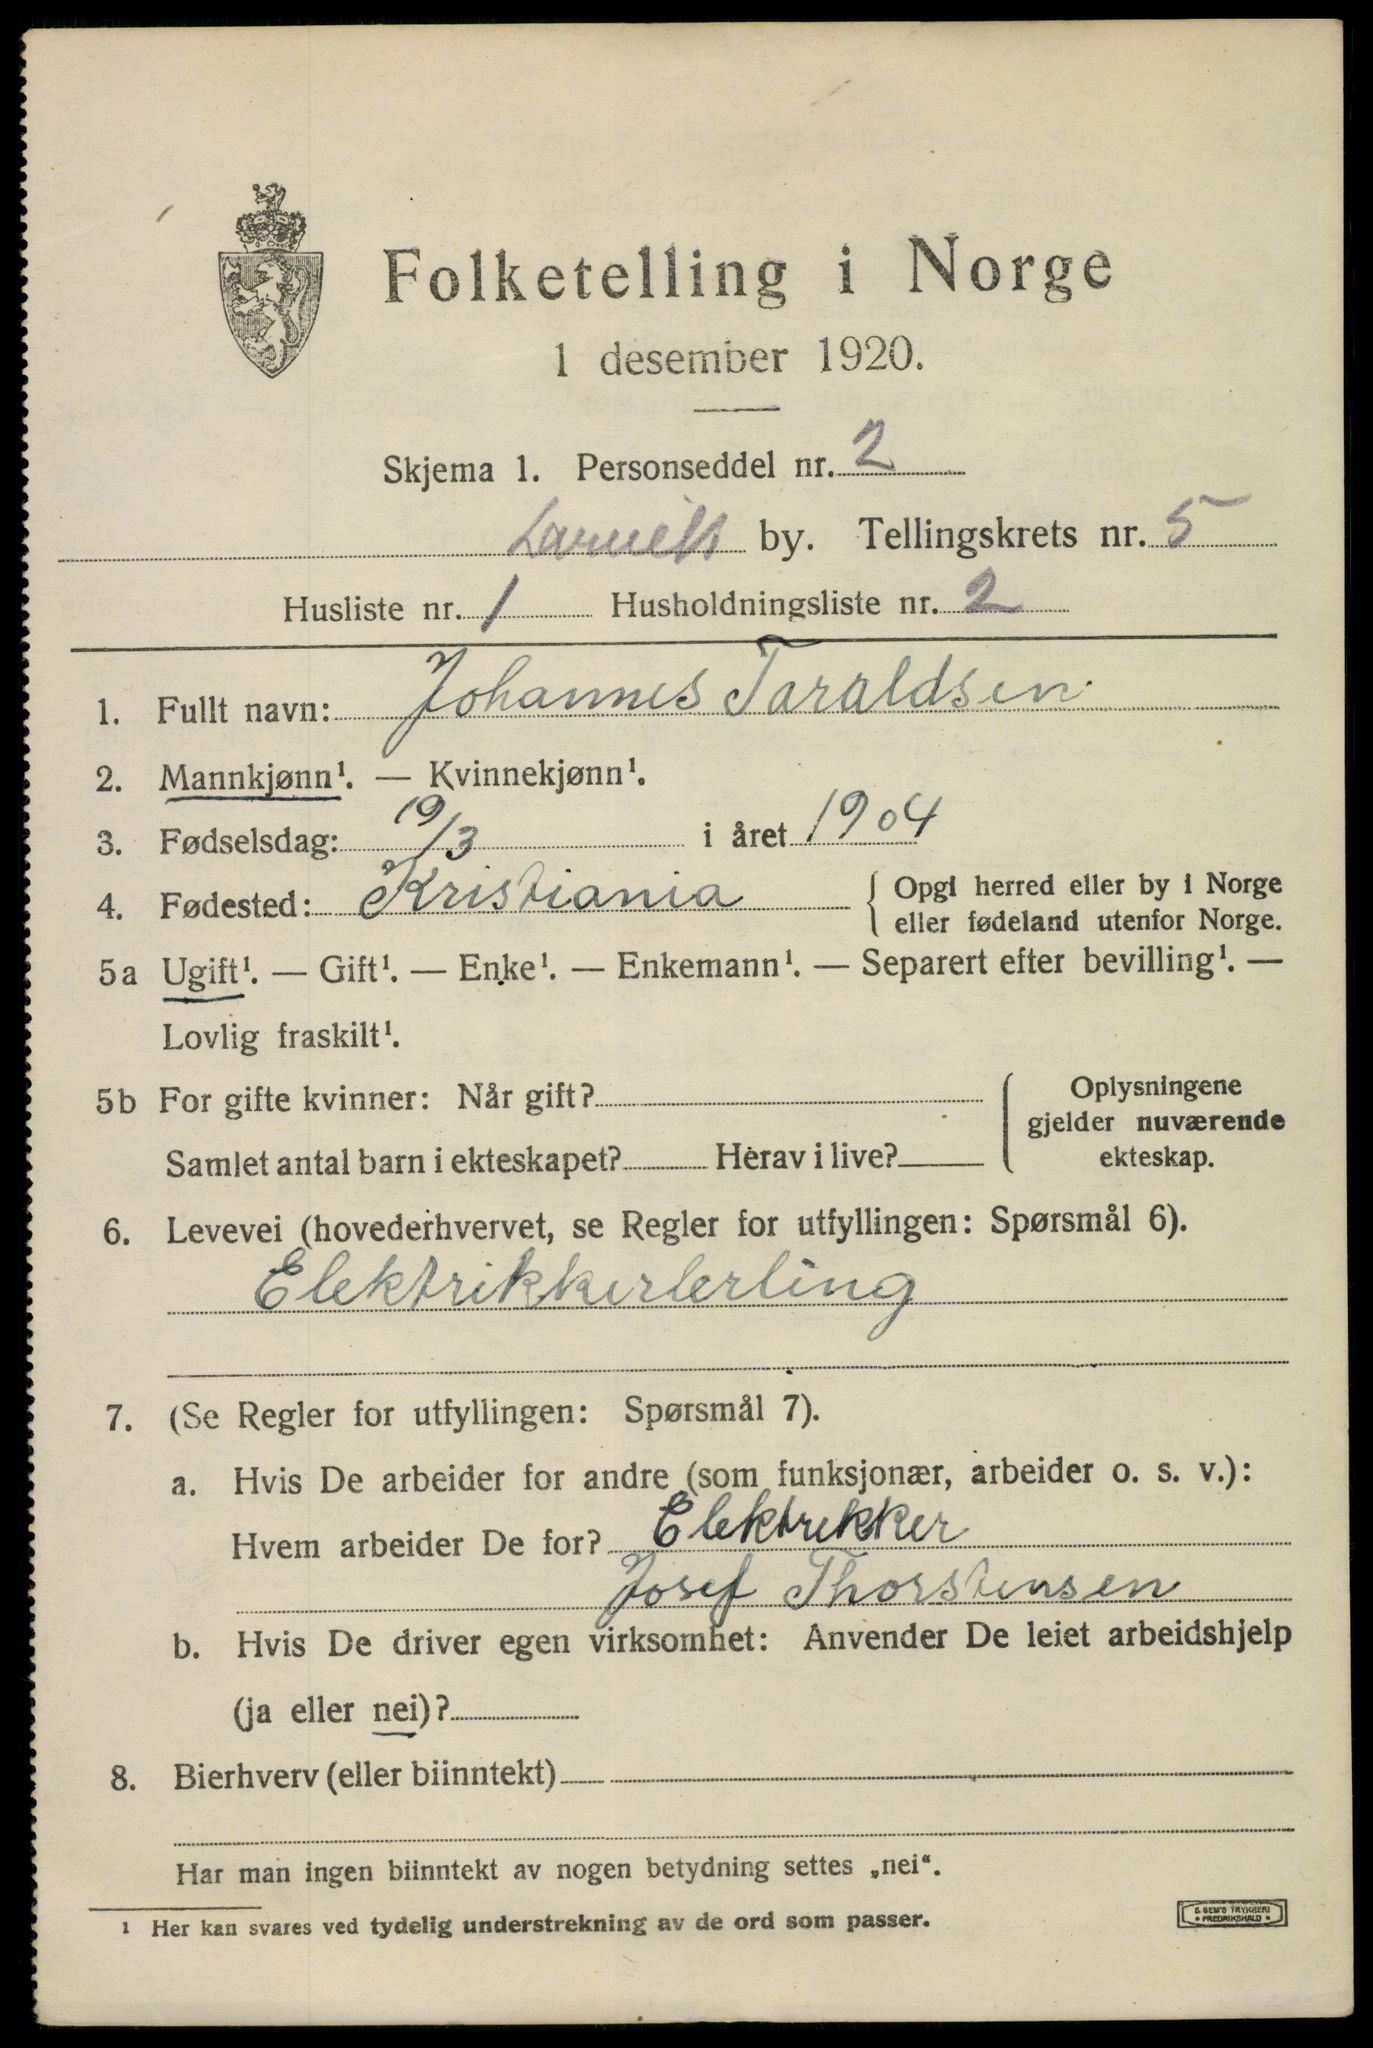 Folketelling i Norge
1 desember 1920.
Skjema 1. Personseddel nr. 2
Larvik by. Tellingskrets nr. 5
Husliste nr. 1 Husholdningsliste nr. 2
1. Fullt navn: Johannes Taraldsen
2. Mannkjønn¹. — Kvinnekjønn¹.
3. Fødselsdag: 19/3 i året 1904
4. Fødested: Kristiania { Opgi herred eller by i Norge
eller fødeland utenfor Norge.
5a Ugift¹. — Gift¹. — Enke¹. — Enkemann¹. — Separert efter bevilling¹. —
Lovlig fraskilt¹.
5b For gifte kvinner: Når gift? { Oplysningene
gjelder nuværende
Samlet antal barn i ekteskapet? Herav i live? ekteskap.
6. Levevei (hovederhvervet, se Regler for utfyllingen: Spørsmål 6).
Elektrikkerlerling
7. (Se Regler for utfyllingen: Spørsmål 7).
a. Hvis De arbeider for andre (som funksjonær, arbeider o. s. v.):
Hvem arbeider De for? Elektrikker
Josef Thorstensen
b. Hvis De driver egen virksomhet: Anvender De leiet arbeidshjelp
(ja eller nei)?
8. Bierhverv (eller biinntekt)
Har man ingen biinntekt av nogen betydning settes „nei“.
¹ Her kan svares ved tydelig understrekning av de ord som passer.
E. SEM'S TRYKKERI
• FREDRIKSHALD •